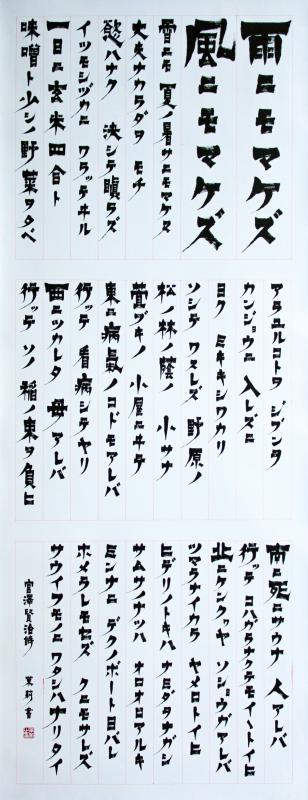 雨ニモマケズ
風ニモマケズ
雪ニモ夏ノ暑サニモマケヌ
丈夫ナカラダヲ モチ
慾ハナク 決シテ瞋ラズ
イツモシヅカニ ワラッテヰル
一日ニ玄米四合ト
味噌ト少シノ野菜ヲタベ
アラユルコトヲ ジブンヲ
カンジョウニ 入レズニ
ヨク ミキキシワカリ
ソシテ ワスレズ 野原ノ
松ノ林ノ蔭ノ 小サナ
萓ブキノ 小屋ニヰテ
東ニ病氣ノコドモアレバ
行ッテ 看病シテヤリ
西ニツカレタ 母アレバ
行ッテ ソノ稲ノ束ヲ負ヒ
南ニ死ニサウナ 人アレバ
行ッテ コハガラナクテモイヽトイヒ
北ニケンクヮヤ ソショウガアレバ
ツマラナイカラ ヤメロトイヒ
ヒデリノトキハ ナミダヲナガシ
サムサノナツハ オロオロアルキ
ミンナニ デクノボートヨバレ
ホメラレモセズ クニモサレズ
サウイフモノニ ワタシハナリタイ
宮澤賢治詩 茉莉書